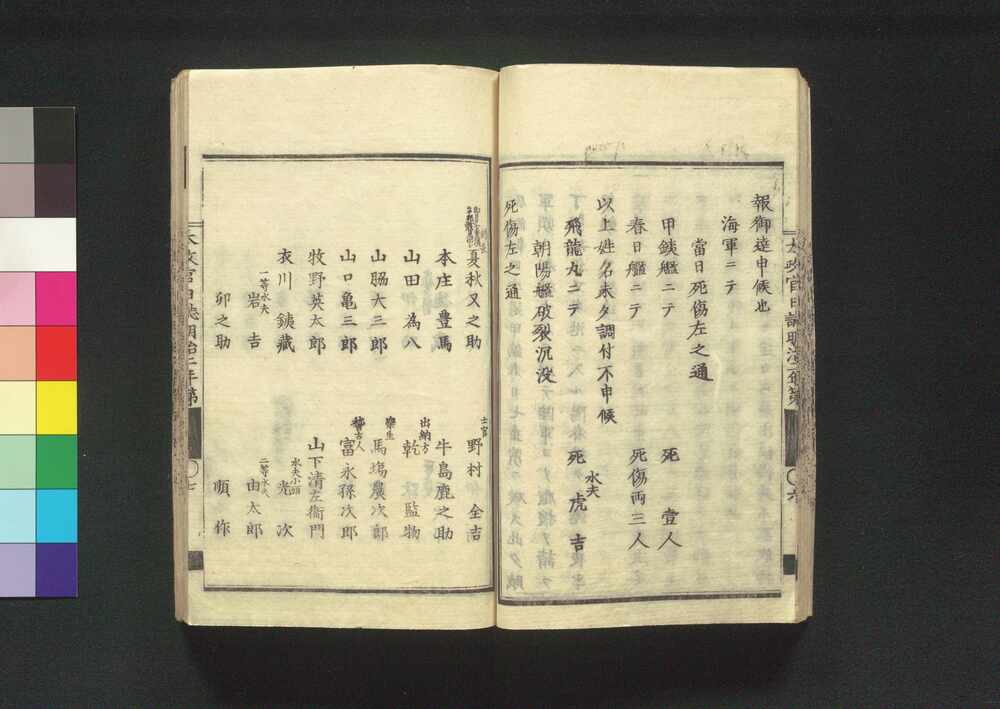 報御達申候也
海軍ニテ
當日死傷左之通
甲鐵艦ニテ 死 壹人
春日艦ニテ 死傷両三人
以上姓名未タ調付不申候
飛龍丸ニテ 死 水夫 虎吉
朝陽艦破裂沉没
死傷左之通
夏秋又之助 士官 野村 全吉
本庄豊馬 牛島鹿之助
山田為八 出納方 乾 監物
山脇大三郎 樂生 馬塲廣次郎
山口亀三郎 稽古人 富永孫次郎
牧野英太郎 山下清左衛門
衣川鐵藏 水夫小頭 光次
一等水夫 岩吉 二等水夫 由太郎
卯之助 順作
太政官日誌明治二年第 六
太政官日誌明治二年第 七